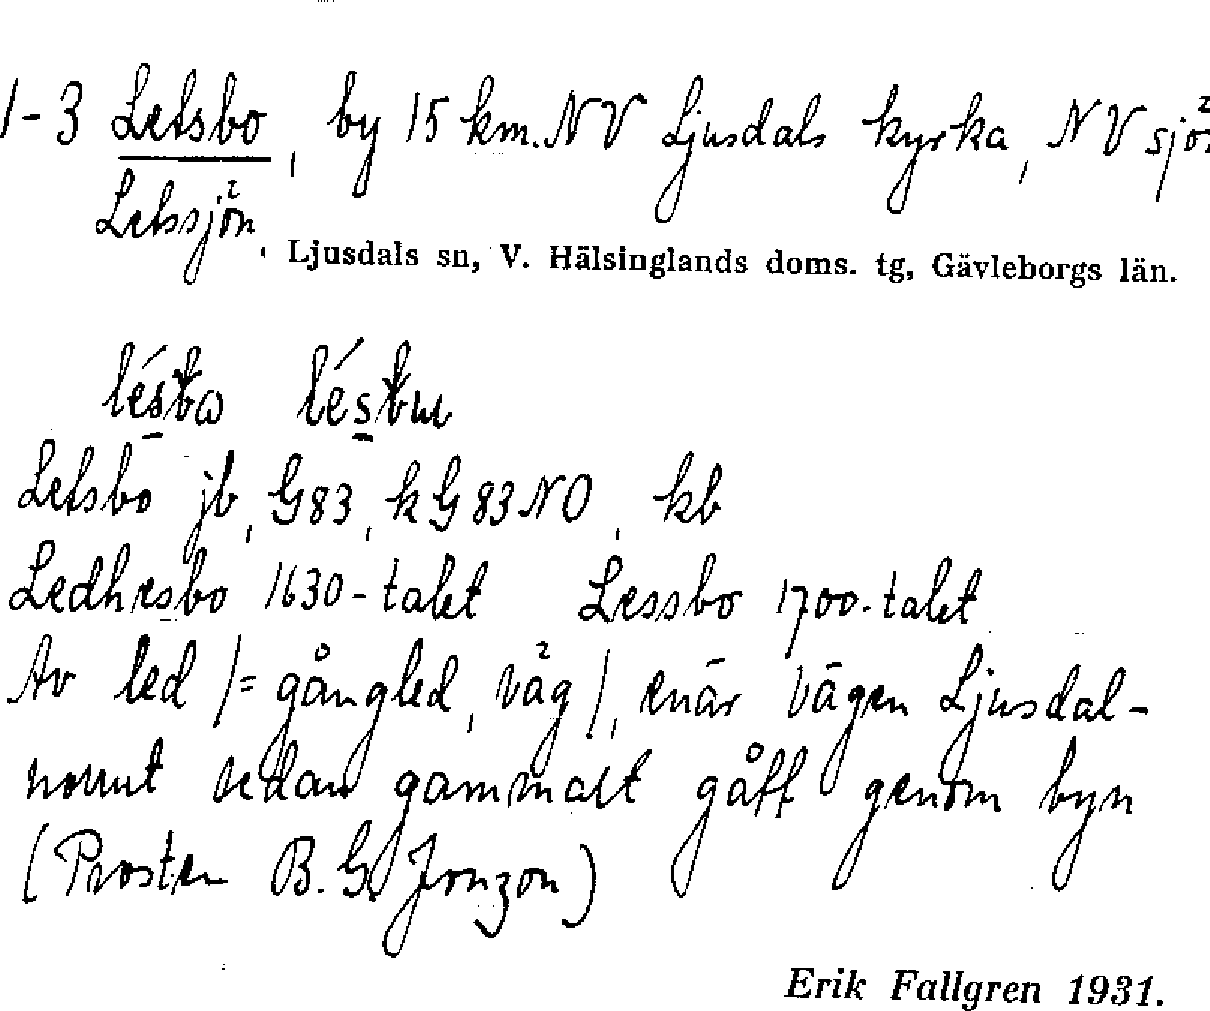 1-3 Letsbo, by 15 km. NV Ljusdals kyrka, NV sjön
Letssjön, Ljusdals sn, V. Hälsinglands doms. tg, Gävleborgs län.
Letsbo jb, G83, kG83NO, kb
Ledhesbo 1630-talet Lessbo 1700-talet
Av led /= gångled, väg/, enär vägen Ljusdal-
norrut sedan gammalt gått genom byn
(Prosten B. G. Jonzon)
Erik Fallgren 1931.